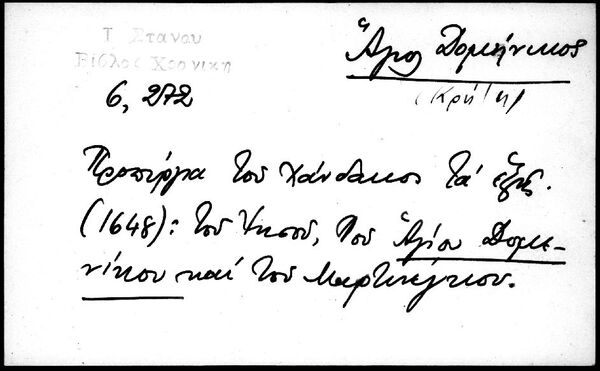 Ι Στανου
Βίβλος Χρονικη
6, 272
Ἅγιος Δομένικος
(Κρήτη)
Προπύργια τοῦ Χάνδακος τὰ ἑξῆς.
(1648): τοῦ Ἰησοῦ, τοῦ Ἁγίου Δομε-
νίκου καί τοῦ Μαρτινέγκου.